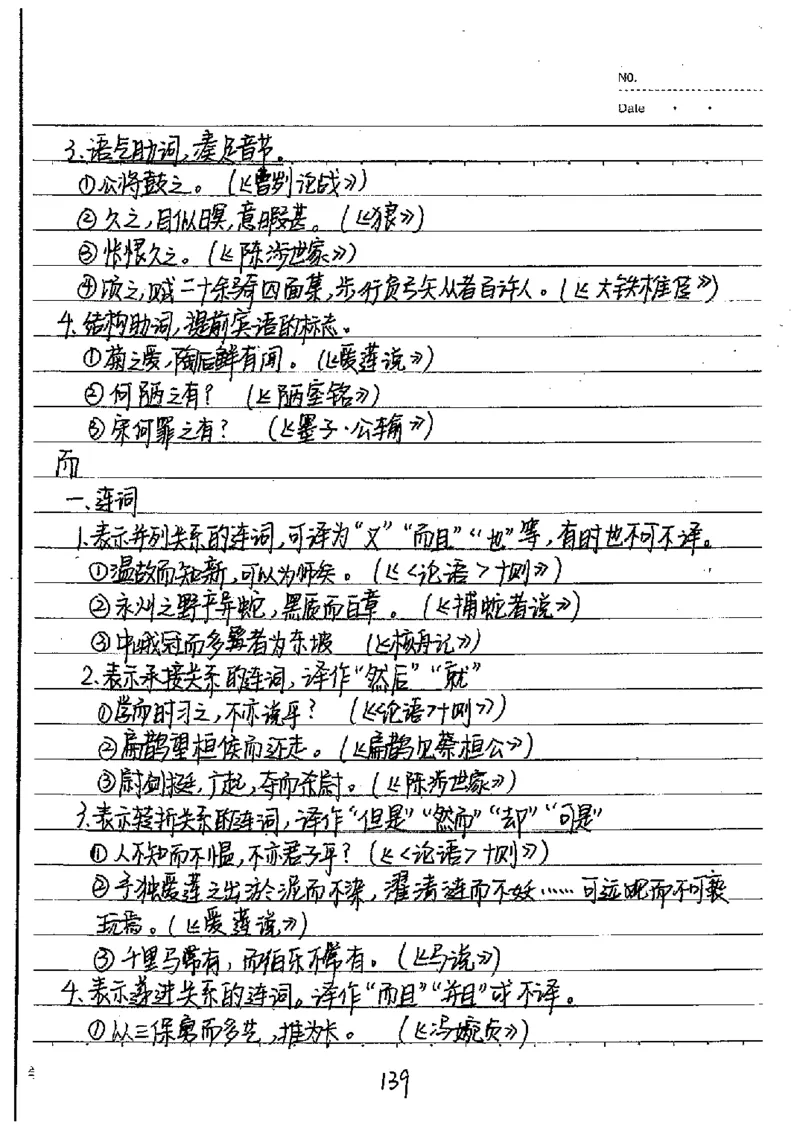 NO.
Date
3、语气助词,凑足音节。
①公将鼓之。(《曹刿论战》)
②久之,目似瞑,意暇甚。(《狼》)
③怅恨久之。(《陈涉世家》)
④顷之,贼二十余骑四面集,步行负弓矢从者百许人。(《大铁椎传》)
4、结构助词,提前宾语的标志。
①菊之爱,陶后鲜有闻。(《爱莲说》)
②何陋之有?(《陋室铭》)
③宋何罪之有?(《墨子·公输》)
而
一、连词
1、表示并列关系的连词,可译为“又”“而且”“也”等,有时也不可不译。
①温故而知新,可以为师矣。(《<论语>十则》)
②永州之野产异蛇,黑质而白章。(《捕蛇者说》)
③中峨冠而多髯者为东坡(《核舟记》)
2、表示承接关系的连词,译作“然后”“就”
①学而时习之,不亦说乎?(《<论语>十则》)
②扁鹊望桓侯而还走。(《扁鹊见蔡桓公》)
③尉剑挺,广起,夺而杀尉。(《陈涉世家》)
3、表示转折关系的连词,译作“但是”“然而”“却”“可是”
①人不知而不愠,不亦君子乎?(《<论语>十则》)
②予独爱莲之出淤泥而不染,濯清涟而不妖……可远观而不可亵
玩焉。(《爱莲说》)
③千里马常有,而伯乐不常有。(《马说》)
4、表示递进关系的连词。译作“而且”“并且”或不译。
①以三保勇而多艺,推为长。(《冯婉贞》)
139